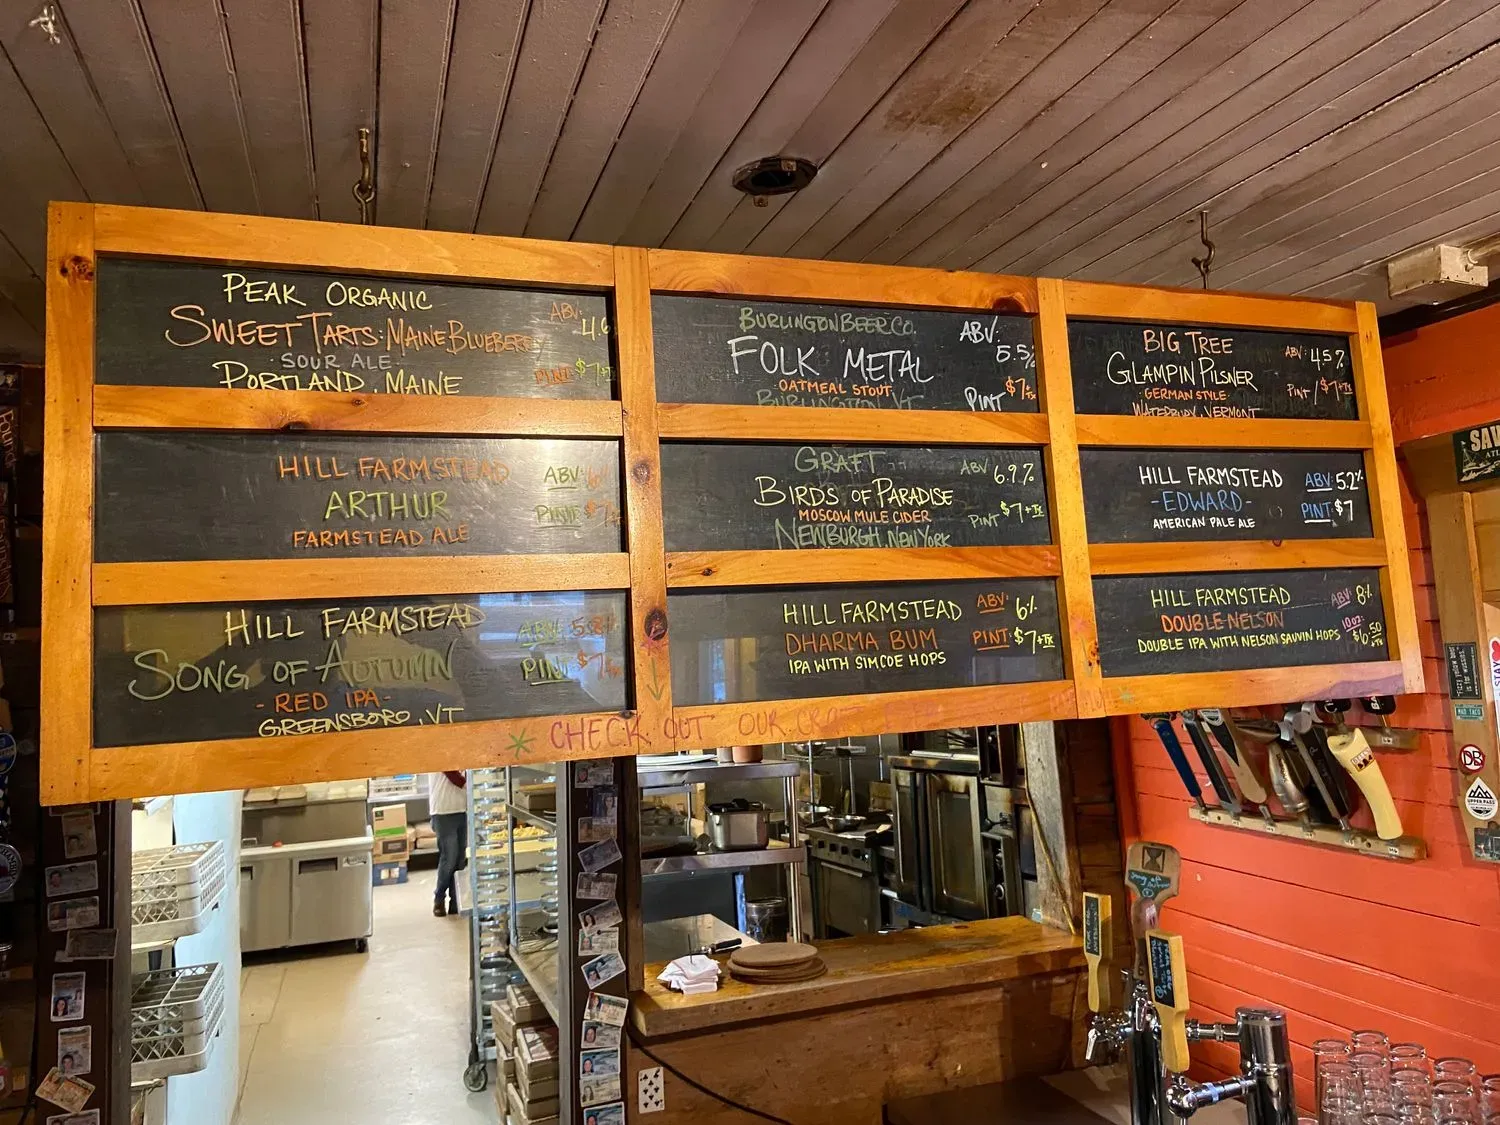 PEAK ORGANIC
SWEET TARTS · MAINE BLUEBERRY
SOUR ALE
PORTLAND, MAINE
ABV: 4.6
PINT $7
BURLINGTON BEER CO.
FOLK METAL
OATMEAL STOUT
BURLINGTON VT
ABV: 5.5%
PINT $7+Tx
BIG TREE
GLAMPIN PILSNER
GERMAN STYLE
WATERBURY, VERMONT
ABV: 4.5%
PINT / $7+Tx
HILL FARMSTEAD
ARTHUR
FARMSTEAD ALE
ABV: 6%
PINT $7
GRAFT
BIRDS OF PARADISE
MOSCOW MULE CIDER
NEWBURGH, NEW YORK
ABV 6.9%
PINT $7+Tx
HILL FARMSTEAD
-EDWARD-
AMERICAN PALE ALE
ABV: 5.2%
PINT: $7
HILL FARMSTEAD
SONG OF AUTUMN
- RED IPA -
GREENSBORO, VT
ABV: 5.8%
PINT $7
HILL FARMSTEAD
DHARMA BUM
IPA WITH SIMCOE HOPS
ABV: 6%
PINT: $7+Tx
HILL FARMSTEAD
DOUBLE NELSON
DOUBLE IPA WITH NELSON SAUVIN HOPS
ABV: 8%
10oz: $6.50 +Tx
* CHECK OUT OUR
SAV
STAY
DB
UPPER PASS